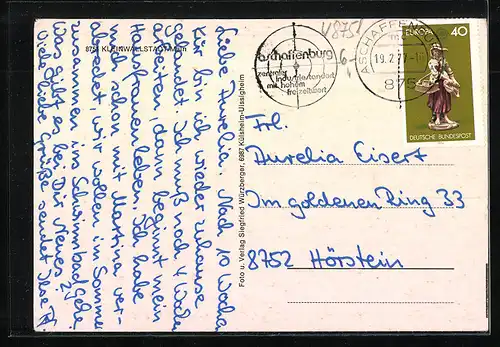 8751 KLEINWALLSTADT/Main
Liebe Aurelia. Nach 10 Wochen
Kur bin ich wieder zuhause
gelandet. Ich muß noch 4 Wochen
arbeiten, dann beginnt mein
Hausfrauenleben. Ich habe
auch schon mit Martina ver-
abredet, wir wollen im Sommer
zusammen ins Schwimmbad gehen.
Was gibt es bei Dir Neues?
Viele liebe Grüße sendet
Foto u. Verlag Siegfried Würzberger, 6987 Külsheim-Uissigheim
aschaffenburg
zentraler
Industriestandort
mit hohem
freizeitwert
ASCHAFFENBURG
19.2.77
875
EUROPA 40
DEUTSCHE BUNDESPOST
Frl.
Aurelia Eisert
Im goldenen Ring 33
8752 Hörstein